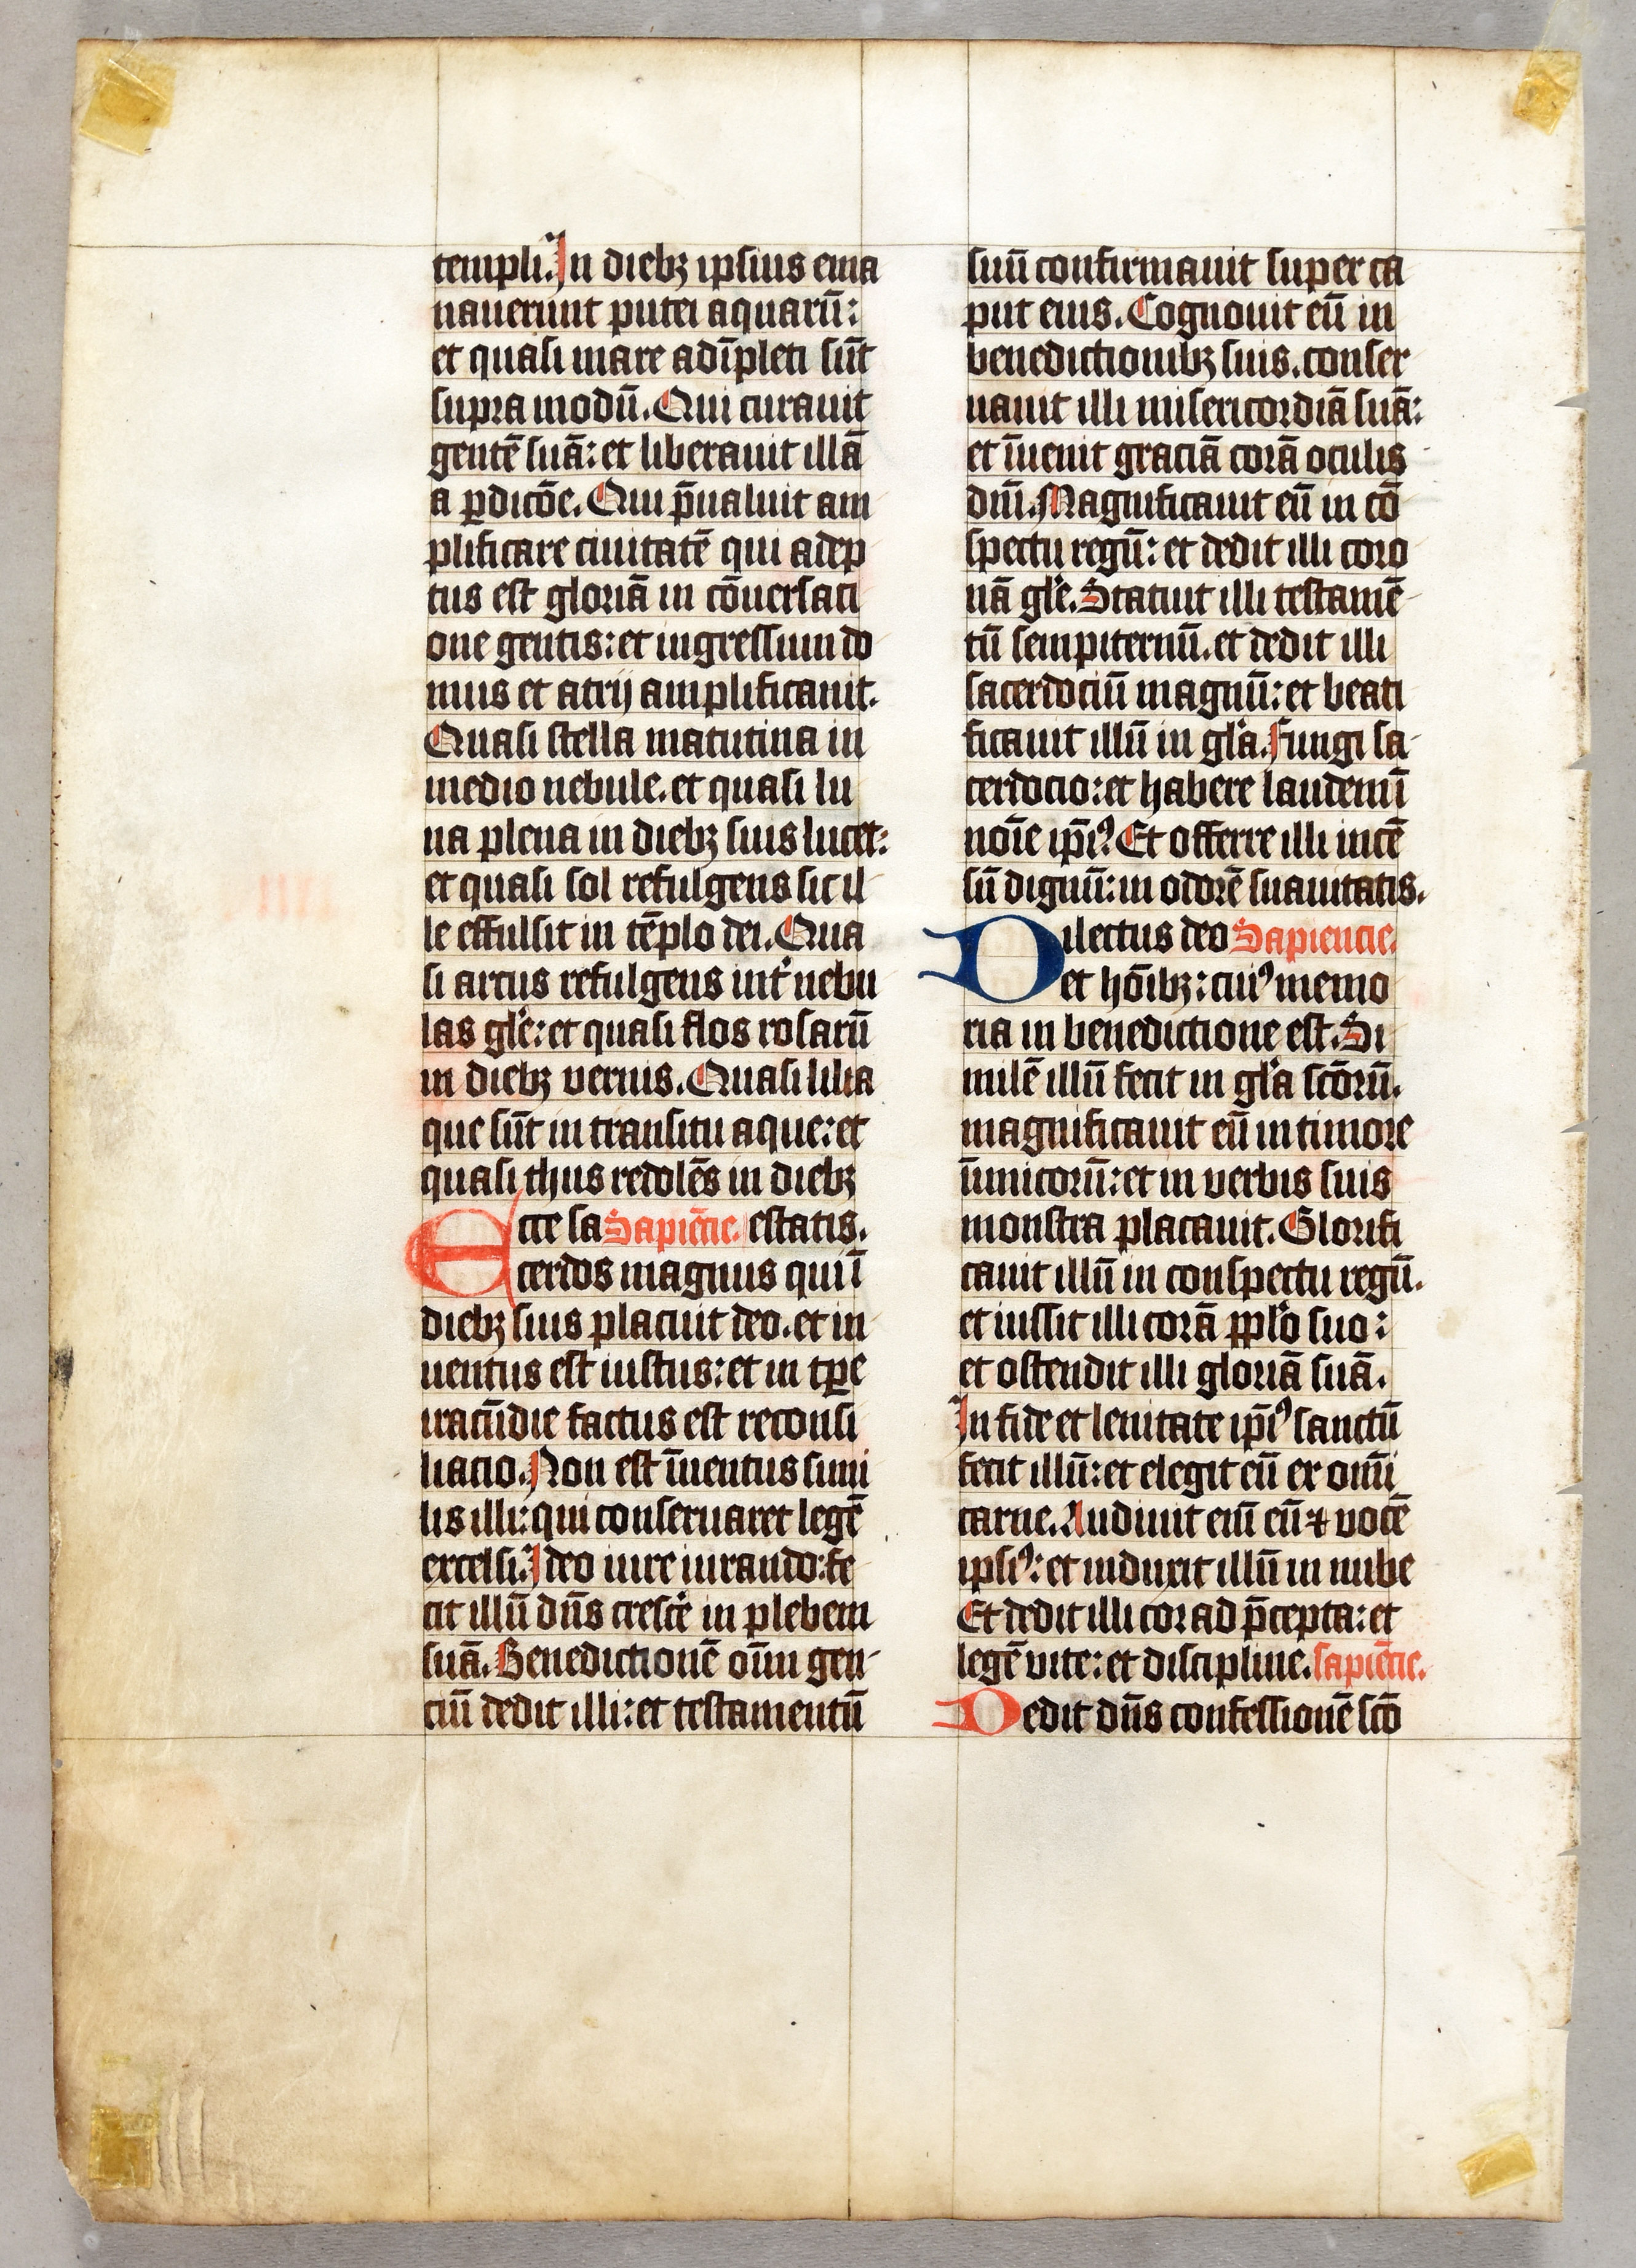 templi. In diebꝫ ipsius ema
nauerunt putei aquarū:
et quasi mare adīpleti sūt
supra modū. Qui curauit
gentē suā: et liberauit illā
a ꝑdicōe. Qui p̄ualuit am
plificare ciuitatē qui adep
tus est gloriā in cōuersaci
one gentis: et ingressum do
mus et atrij amplificauit.
Quasi stella matutina in
medio nebule. et quasi lu
na plena in diebꝫ suis lucet:
et quasi sol refulgens sic il
le effulsit in tēplo dei. Qua
si arcus refulgens int̉ nebu
las gl̓e: et quasi flos rosarū
in diebꝫ vernis. Quasi lilia
que sūt in transitu aque: et
quasi thus redolēs in diebꝫ
Ecce sa Sapiēcie. estatis.
cerdos magnus qui ī
diebꝫ suis placuit deo. et in
uentus est iustus: et in tꝑe
iracūdie factus est reconsi
liacio. Non est īuentus simi
lis illi: qui conseruaret legē
excelsi. Ideo iure iurando: fe
cit illū dn̄s cresc̉e in plebem
suā. Benedictionē oīm gen
ciū dedit illi: et testamentū
suū confirmauit super ca
put eius. Cognouit eū in
benedictionibꝫ suis. conser
uauit illi misericordiā suā:
et īuenit graciā corā oculis
dn̄i. Magnificauit eū in cō
spectu regū: et dedit illi coro
nā gl̓e. Statuit illi testamē
tū sempiternū. et dedit illi
sacerdociū magnū: et beati
ficauit illū in gl̓a. Fungi sa
cerdocio: et habere laudem ī
noīe ip̄iꝰ Et offerre illi incē
sū dignū: in odorē suauitatis.
Dilectus deo Sapiencie.
et hoīibꝫ: cuiꝰ memo
ria in benedictione est. Si
milē illū fecit in gl̓a sc̄orū.
magnificauit eū in timore
īimicorū: et in verbis suis
monstra placauit. Glorifi
cauit illū in conspectu regū.
et iussit illi corā ppl̓o suo:
et ostendit illi gloriā suā.
In fide et lenitate ip̄iꝰ sanctū
fecit illū: et elegit eū ex om̄i
carne. Audiuit eni̅ eū ⁊ vocē
ipsiꝰ: et induxit illū in nube
Et dedit illi cor ad p̄cepta: et
legē vite: et discipline. sapiēcie.
Dedit dn̄s confessionē sc̄o